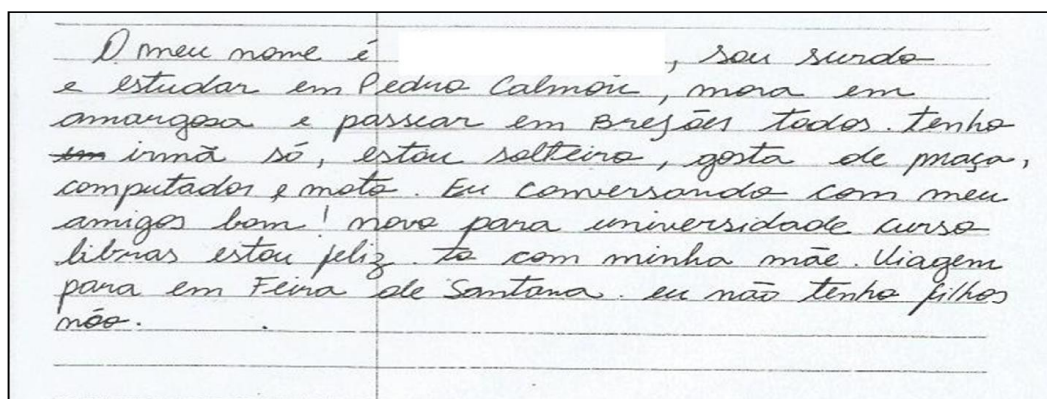 O meu nome é , sou surdo
e estudar em Pedro Calmon, mora em
amargosa e passear em Brejões todos. tenho
um irmã só, estou solteiro, gosta de praça,
computador e moto. Eu conversando com meu
amigos bom! novo para universidade curso
libras estou feliz to com minha mãe. Viagem
para em Feira de Santana. eu não tenho filhos
não.